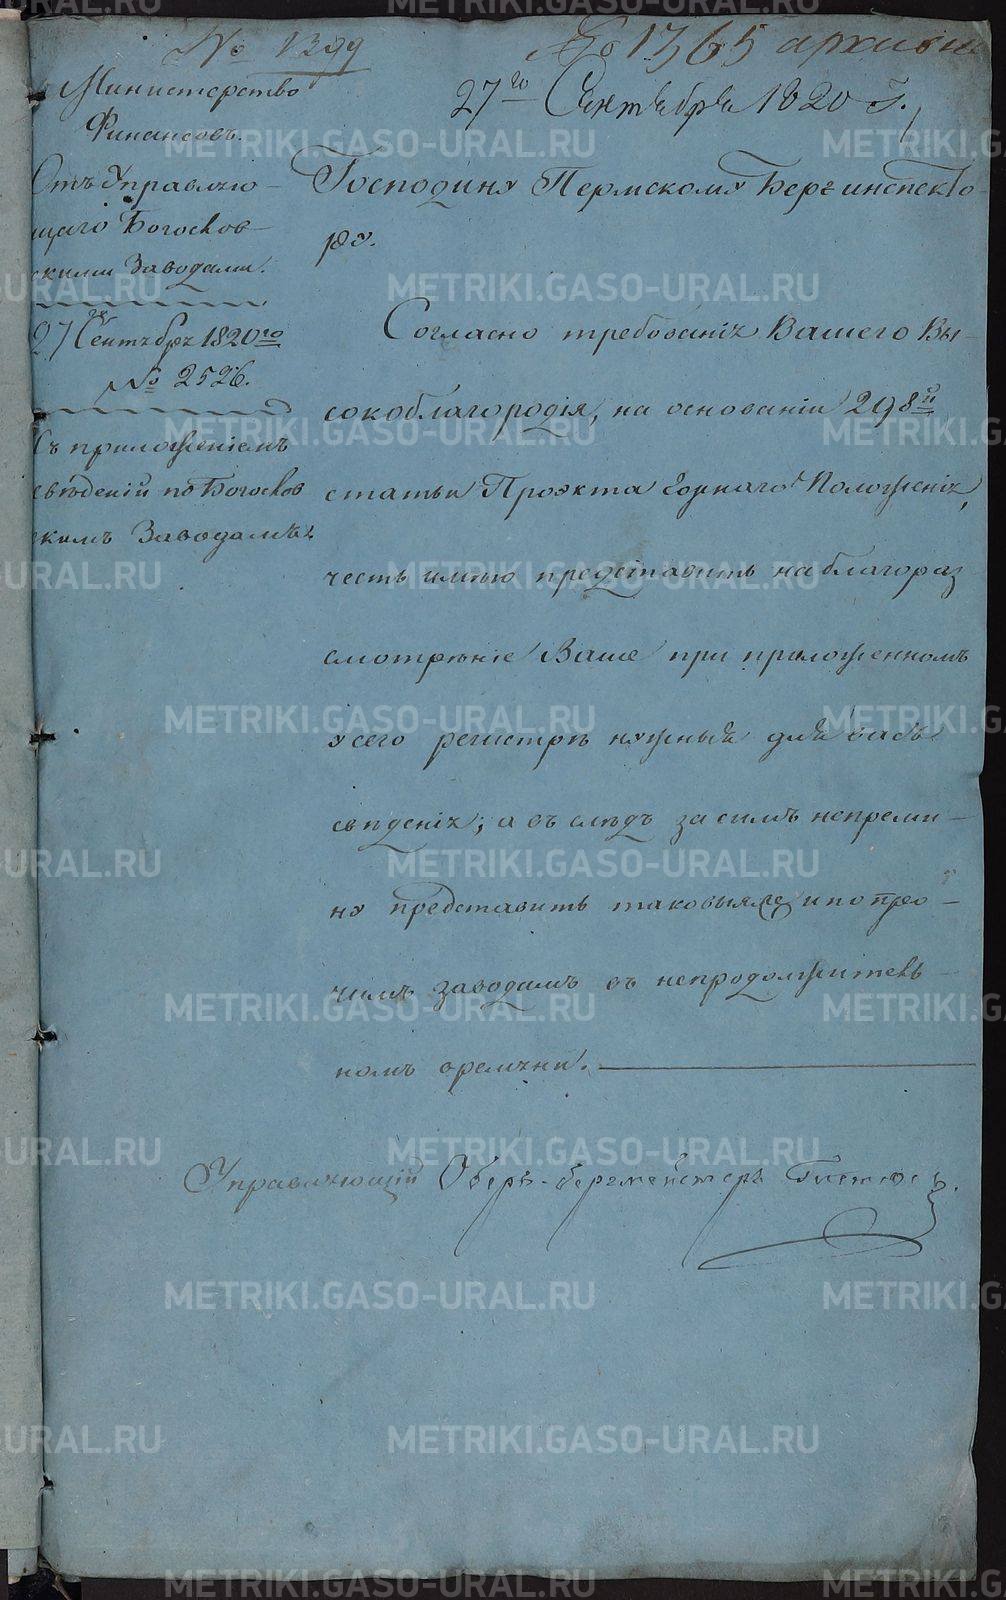 № 1399
№ 1365 архивн
27го Сентября 1820 г.
Министерство
Финансовъ.
Отъ Управляю-
щаго Богослов-
скими Заводами.
27 Сентября 1820го
№ 2526.
Съ приложеніемъ
сведеній по Богослов
скимъ Заводамъ
Господину Пермскому Бергинспекто-
ру.
Согласно требованія Вашего Вы-
сокоблагородія, на основаніи 298й
статьи Проэкта Горнаго Положенія,
честь имею представить на благораз
смотреніе Ваше при приложенномъ
у сего регистре нужныя для васъ
сведенія; а въ следъ за симъ непреми-
ну представить таковыяже и по про-
чимъ заводамъ въ непродолжитель-
номъ времени.
Управляющій Оберъ-бергмейстеръ
METRIKI.GASO-URAL.RU